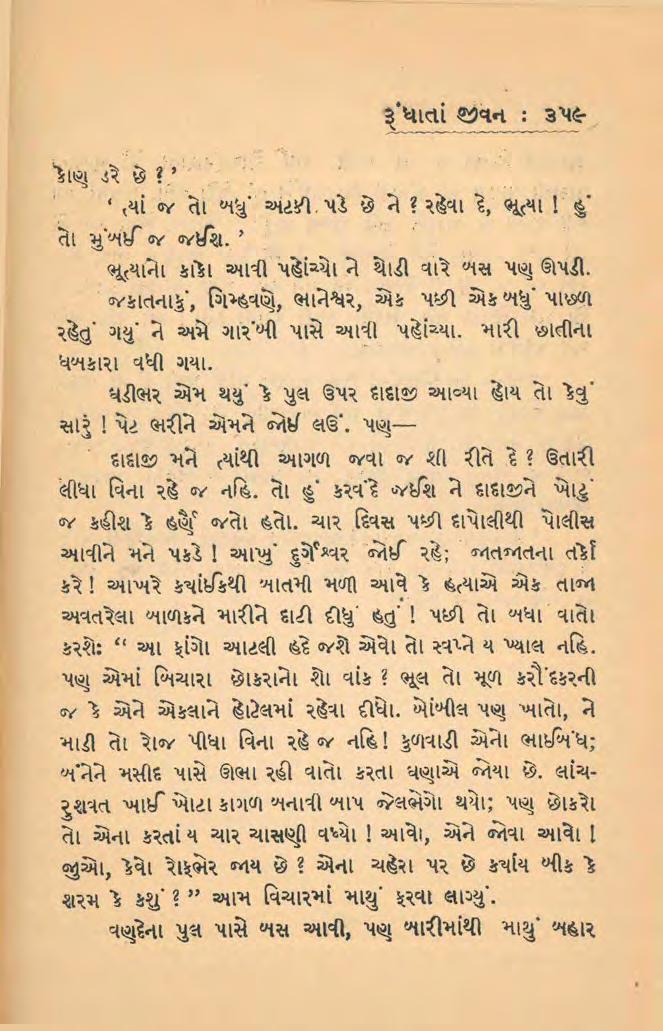 રૂંધાતાં જીવન : ૩૫૯
કોણ ડરે છે ? ’
‘ ત્યાં જ તો બધું અટકી પડે છે ને ? રહેવા દે, ભૂત્યા ! હું
તો મુંબઈ જ જઈશ. ’
ભૂત્યાનો કાકો આવી પહોંચ્યો ને થોડી વારે બસ પણ ઊપડી.
જકાતનાકું, ગિમ્હવણે, ભાનેશ્વર, એક પછી એક બધું પાછળ
રહેતું ગયું ને અમે ગારંબી પાસે આવી પહોંચ્યા. મારી છાતીના
ધબકારા વધી ગયા.
ઘડીભર એમ થયું કે પુલ ઉપર દાદાજી આવ્યા હોય તો કેવું
સારું ! પેટ ભરીને એમને જોઈ લઉં. પણ—
દાદાજી મને ત્યાંથી આગળ જવા જ શી રીતે દે ? ઉતારી
લીધા વિના રહે જ નહિ. તો હું કરવંદે જઈશ ને દાદાજીને ખોટું
જ કહીશ કે હર્ણૈ જતો હતો. ચાર દિવસ પછી દાપોલીથી પોલીસ
આવીને મને પકડે ! આખું દુર્ગેશ્વર જોઈ રહે; જાતજાતના તર્કો
કરે ! આખરે ક્યાંઈકથી બાતમી મળી આવે કે હત્યાએ એક તાજા
અવતરેલા બાળકને મારીને દાટી દીધું હતું ! પછી તો બધા વાતો
કરશે: “ આ ફાંગો આટલી હદે જશે એવો તો સ્વપ્ને ય ખ્યાલ નહિ.
પણ એમાં બિચારા છોકરાનો શો વાંક ? ભૂલ તો મૂળ કરૌંદકરની
જ કે એને એકલાને હોટેલમાં રહેવા દીધો. બોંબીલ પણ ખાતો, ને
માડી તો રોજ પીધા વિના રહે જ નહિ! કુળવાડી એનો ભાઈબંધ;
બંનેને મસીદ પાસે ઊભા રહી વાતો કરતા ઘણાએ જોયા છે. લાંચ-
રુશવત ખાઈ ખોટા કાગળ બનાવી બાપ જેલભેગો થયો; પણ છોકરો
તો એના કરતાં ય ચાર ચાસણી વધ્યો ! આવો, એને જોવા આવો !
જુઓ, કેવો રોફભેર જાય છે ? એના ચહેરા પર છે ક્યાંય બીક કે
શરમ કે કશું ? ” આમ વિચારમાં માથું ફરવા લાગ્યું.
વણદેના પુલ પાસે બસ આવી, પણ બારીમાંથી માથું બહાર